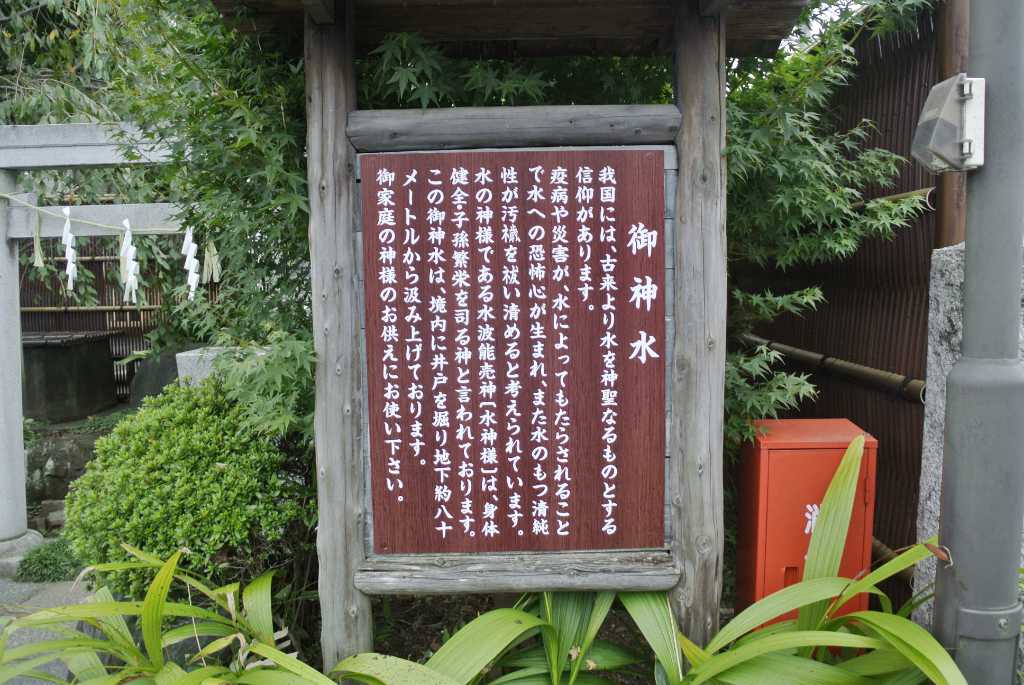 御神水
我国には、古来より水を神聖なるものとする
信仰があります。
疫病や災害が、水によってもたらされること
で水への恐怖心が生まれ、また水のもつ清純
性が汚穢を祓い清めると考えられています。
水の神様である水波能売神〔水神様〕は、身体
健全・子孫繁栄を司る神と言われております。
この御神水は、境内に井戸を堀り地下約八十
メートルから汲み上げております。
御家庭の神様のお供えにお使い下さい。
消